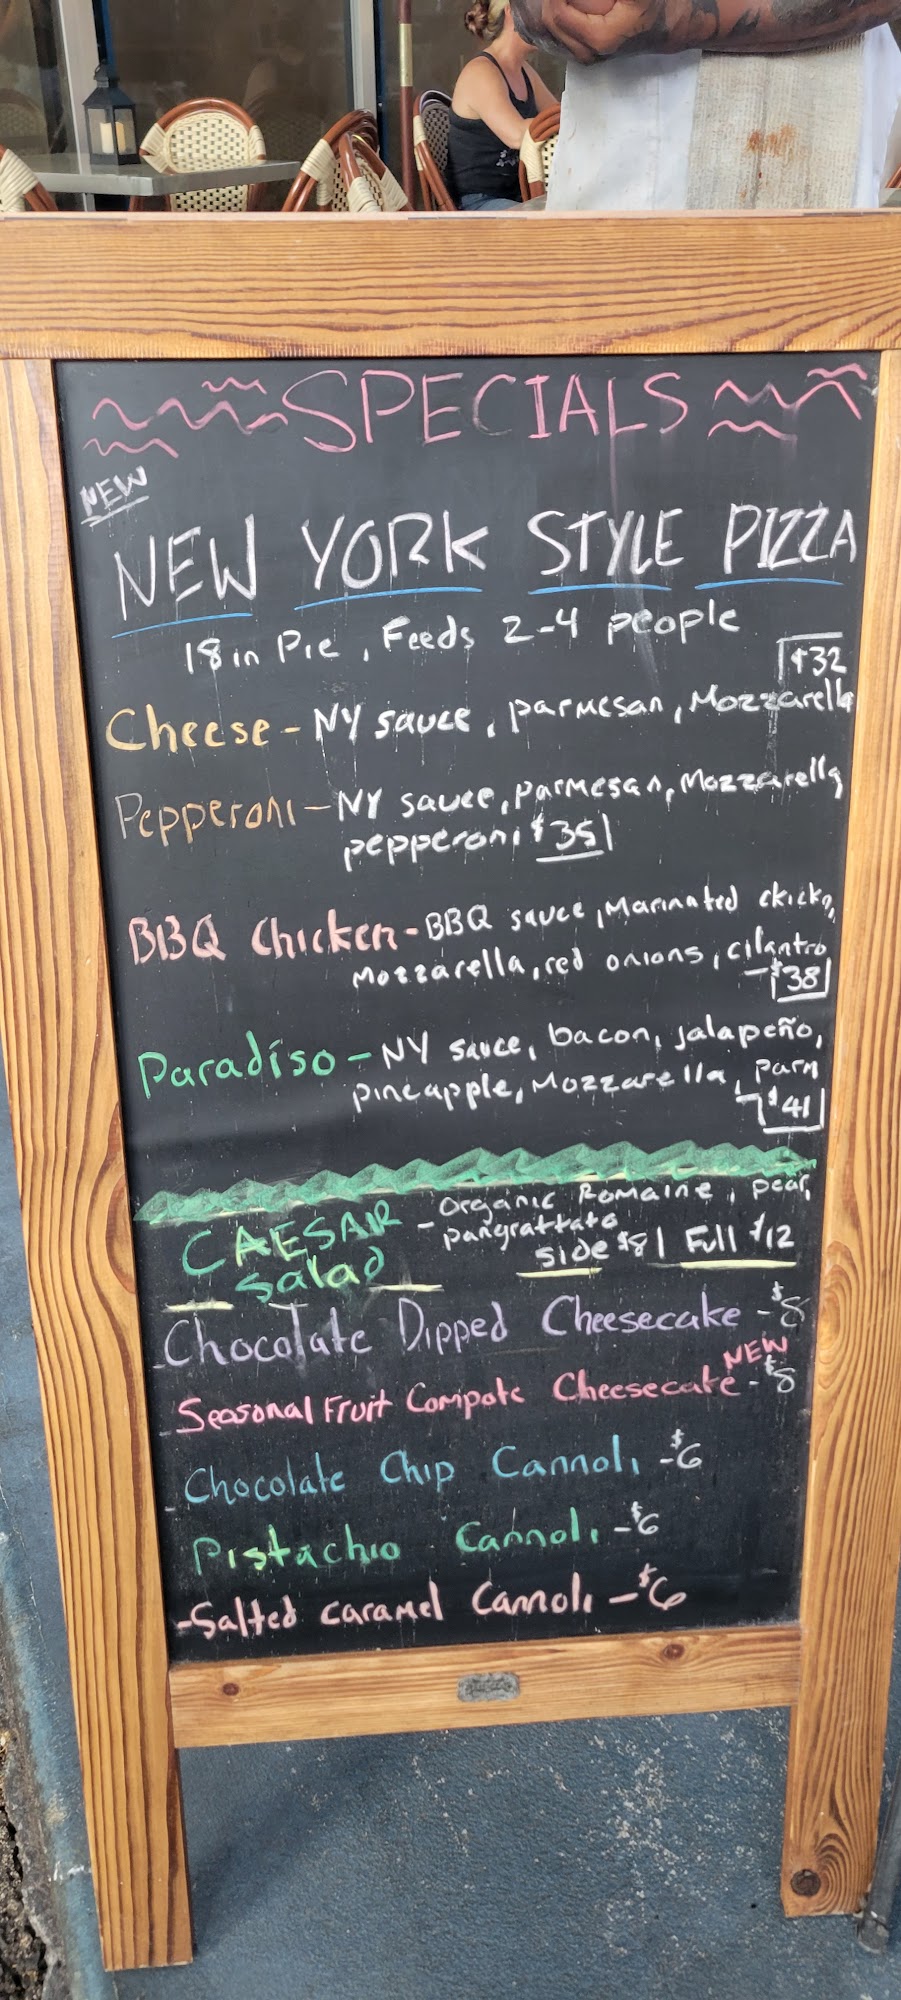 SPECIALS
NEW
NEW YORK STYLE PIZZA
18 in Pie, Feeds 2-4 people
$32
Cheese - NY sauce, parmesan, Mozzarella
Pepperoni - NY sauce, parmesan, Mozzarella,
pepperoni $35
BBQ Chicken - BBQ sauce, Marinated chicken,
Mozzarella, red onions, cilantro
- $38
Paradiso - NY sauce, bacon, jalapeño,
pineapple, Mozzarella, parm
- $41
CAESAR - Organic Romaine, pear,
salad pangrattato
side $8 | Full $12
- Chocolate Dipped Cheesecake - $8
NEW
- Seasonal Fruit Compote Cheesecake - $8
- Chocolate Chip Cannoli - $6
Pistachio Cannoli - $6
- Salted caramel Cannoli - $6